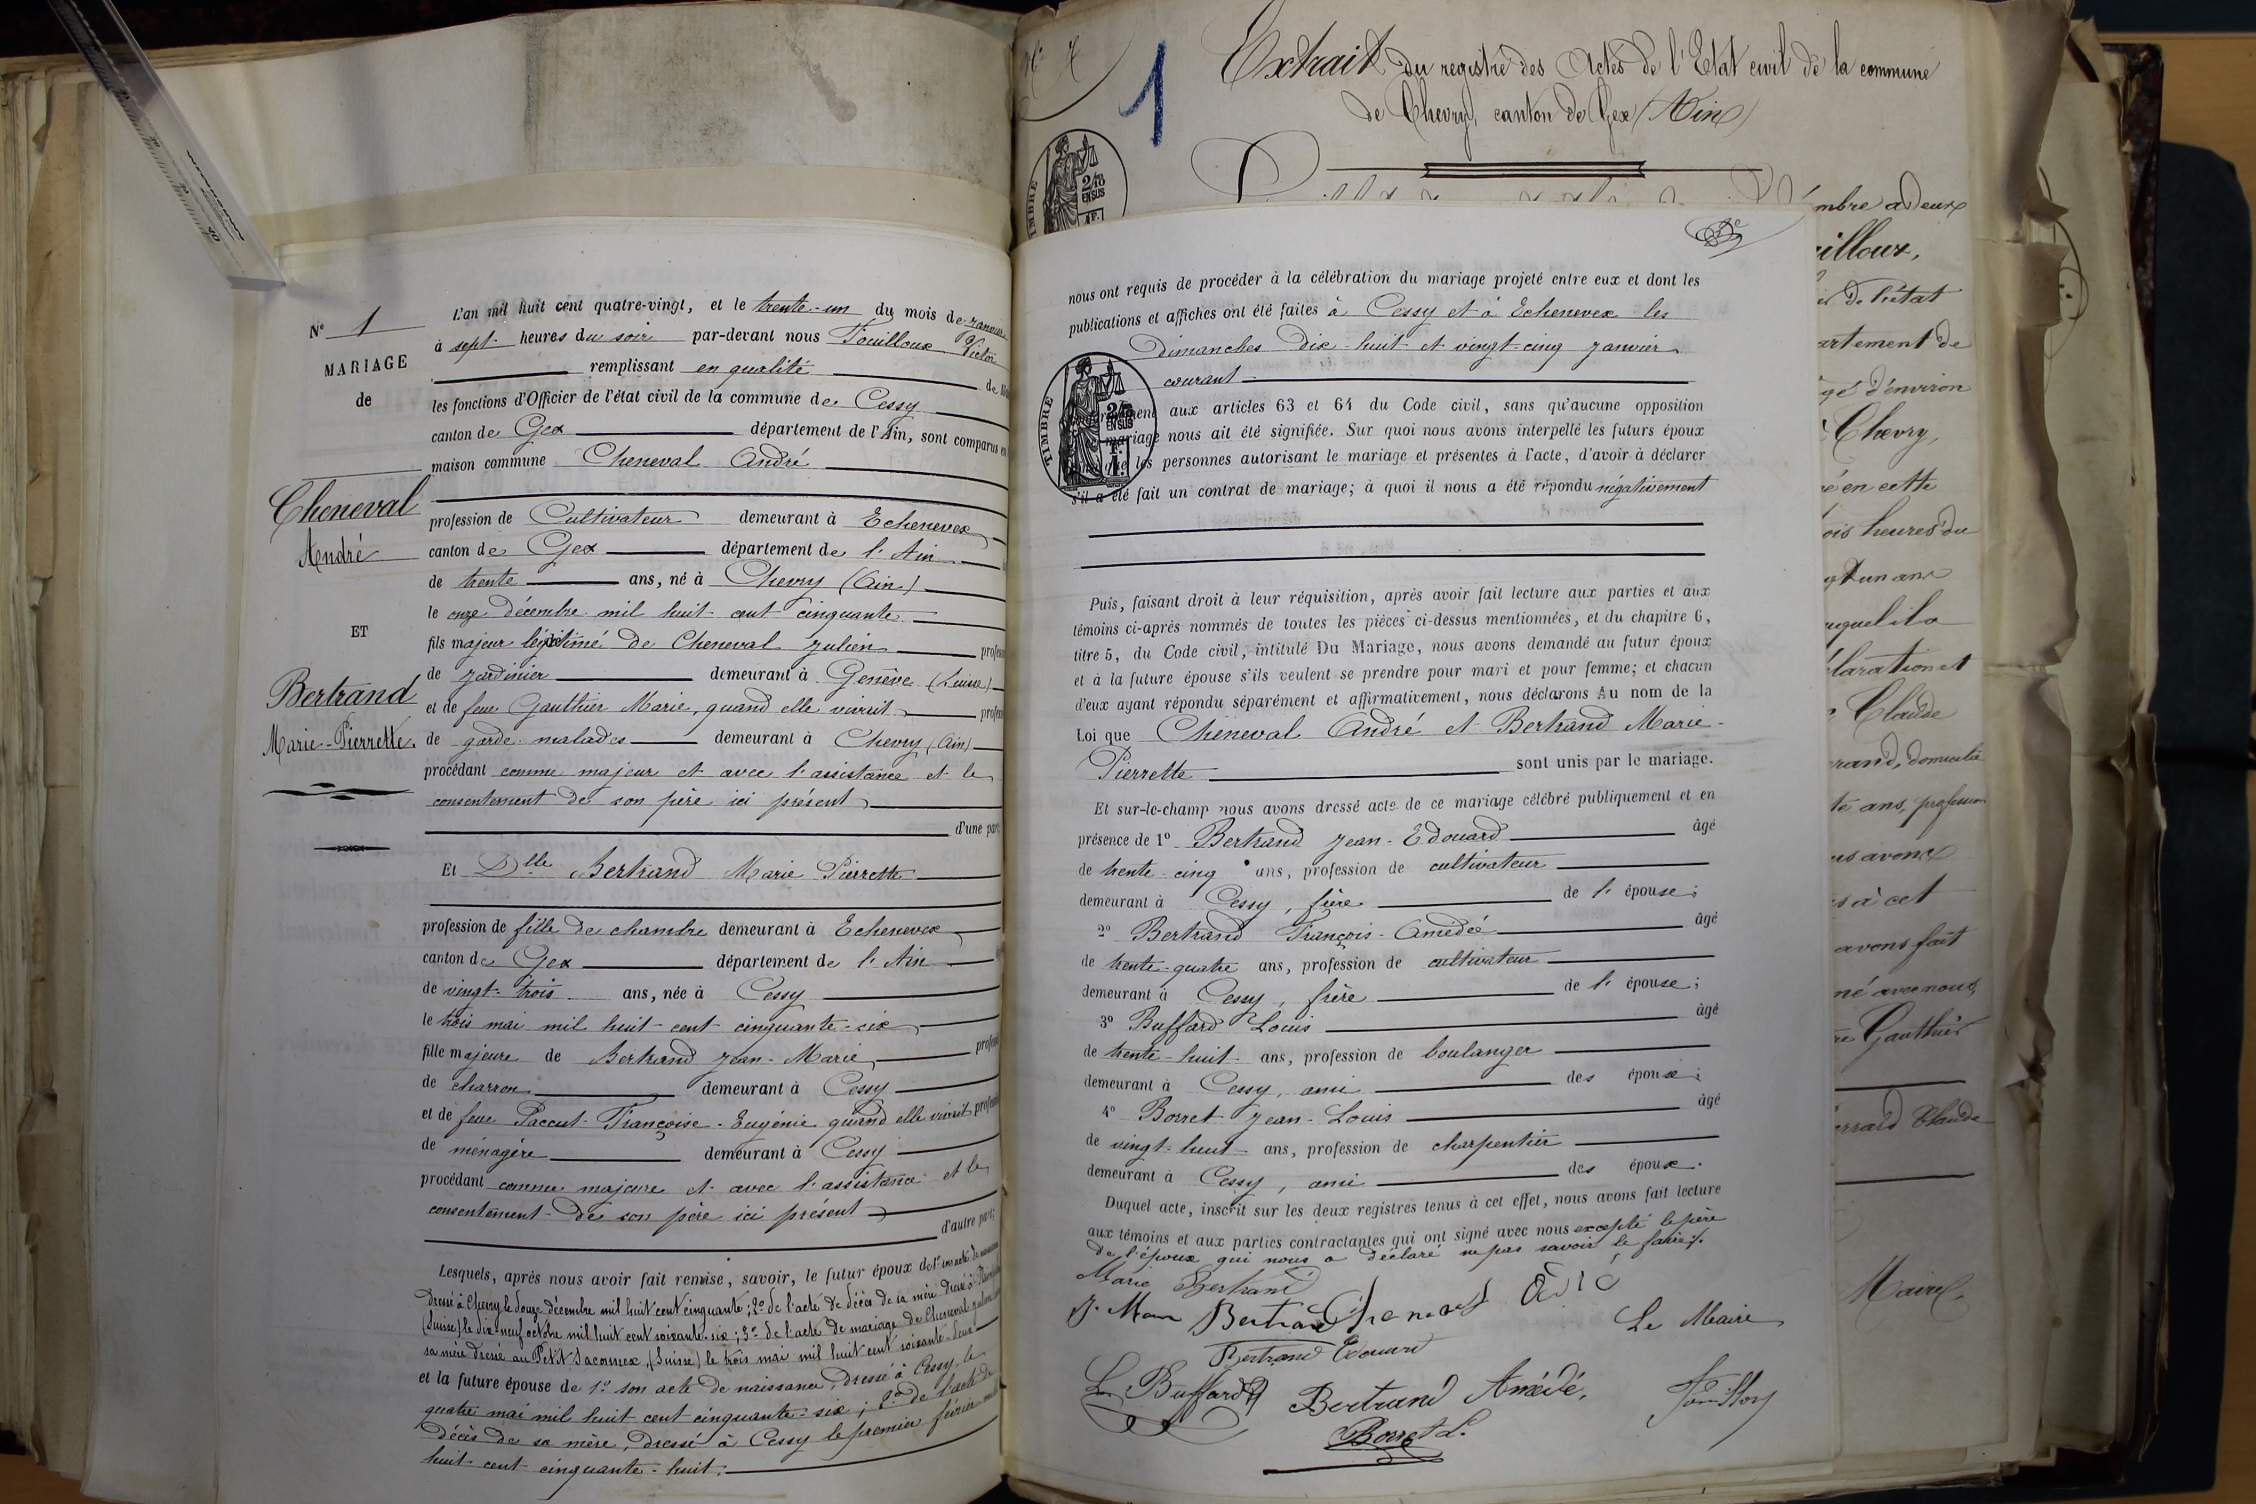 N° 1
MARIAGE
de
Cheneval
André
ET
Bertrand
Marie-Pierrette.
L'an mil huit cent quatre-vingt, et le trente-un du mois de Janvier
à sept heures du soir par-devant nous Fouilloux Victor
remplissant en qualité de
les fonctions d'Officier de l'état civil de la commune de Cessy
canton de Gex département de l'Ain, sont comparus en
maison commune Cheneval André
profession de Cultivateur demeurant à Echenevex
canton de Gex département de l'Ain
de trente ans, né à Chevry (Ain)
le onze décembre mil huit cent cinquante
fils majeur légitimé de Cheneval Julien
de jardinier demeurant à Genève (Suisse)
et de feue Gauthier Marie, quand elle vivait
de garde-malades demeurant à Chevry (Ain)
procédant comme majeur et avec l'assistance et le
consentement de son père ici présent
d'une part
Et Dlle Bertrand Marie Pierrette
profession de fille de chambre demeurant à Echenevex
canton de Gex département de l'Ain
de vingt-trois ans, née à Cessy
le trois mai mil huit cent cinquante-six
fille majeure de Bertrand Jean-Marie
de charron demeurant à Cessy
et de feue Paccut Françoise-Eugénie quand elle vivait
de ménagère demeurant à Cessy
procédant comme majeure et avec l'assistance et le
consentement de son père ici présent
d'autre part;
Lesquels, après nous avoir fait remise, savoir, le futur époux de 1° son acte de naissance
dressé à Chevry le douze décembre mil huit cent cinquante; 2° de l'acte de décès de sa mère dressé à
(Suisse) le dix-neuf octobre mil huit cent soixante-six; 3° de l'acte de mariage de Cheneval Julien
sa mère dressé au Petit Saconnex, (Suisse) le trois mai mil huit cent soixante-deux
et la future épouse de 1° son acte de naissance, dressé à Cessy le
quatre mai mil huit cent cinquante-six; 2° de l'acte de
décès de sa mère, dressé à Cessy le premier février mil
huit cent cinquante-huit;
N° 7
1
Extrait du registre des Actes de l'Etat civil de la commune
de Chevry, canton de Gex (Ain)
TIMBRE
2/10
EN SUS
1 F.
nous ont requis de procéder à la célébration du mariage projeté entre eux et dont les
publications et affiches ont été faites à Cessy et à Echenevex les
dimanches dix-huit et vingt-cinq janvier
courant
aux articles 63 et 64 du Code civil, sans qu'aucune opposition
mariage nous ait été signifiée. Sur quoi nous avons interpellé les futurs époux
que les personnes autorisant le mariage et présentes à l'acte, d'avoir à déclarer
s'il a été fait un contrat de mariage; à quoi il nous a été répondu négativement
TIMBRE
2/10
EN SUS
1 F.
Puis, faisant droit à leur réquisition, après avoir fait lecture aux parties et aux
témoins ci-après nommés de toutes les pièces ci-dessus mentionnées, et du chapitre 6,
titre 5, du Code civil, intitulé Du Mariage, nous avons demandé au futur époux
et à la future épouse s'ils veulent se prendre pour mari et pour femme; et chacun
d'eux ayant répondu séparément et affirmativement, nous déclarons Au nom de la
Loi que Cheneval André et Bertrand Marie-
Pierrette sont unis par le mariage.
Et sur-le-champ nous avons dressé acte de ce mariage célébré publiquement et en
présence de 1° Bertrand Jean-Edouard âgé
de trente-cinq ans, profession de cultivateur
demeurant à Cessy, frère de l'épouse;
2° Bertrand François-Amédée âgé
de trente-quatre ans, profession de cultivateur
demeurant à Cessy, frère de l'épouse;
3° Buffard Louis âgé
de trente-huit ans, profession de boulanger
demeurant à Cessy, ami des époux;
4° Borret Jean-Louis âgé
de vingt-huit ans, profession de charpentier
demeurant à Cessy, ami des époux.
Duquel acte, inscrit sur les deux registres tenus à cet effet, nous avons fait lecture
aux témoins et aux parties contractantes qui ont signé avec nous excepté le père
de l'époux qui nous a déclaré ne pas savoir le faire.
Marie Bertrand
J. Marie Bertrand
Bertrand Edouard
Le Maire
L. Buffard
Bertrand Amédé,
Borret L.
Fouilloux
mbre a deux
uilloux,
de l'état
artement de
gé d'environ
Chevry,
né en cette
ois heures du
gt un ans
uquel il a
claration et
Claude
rand, domicilié
te ans, profession
us avons
s à cet
avons fait
né avec nous,
Gauthier
Claude
Maire,